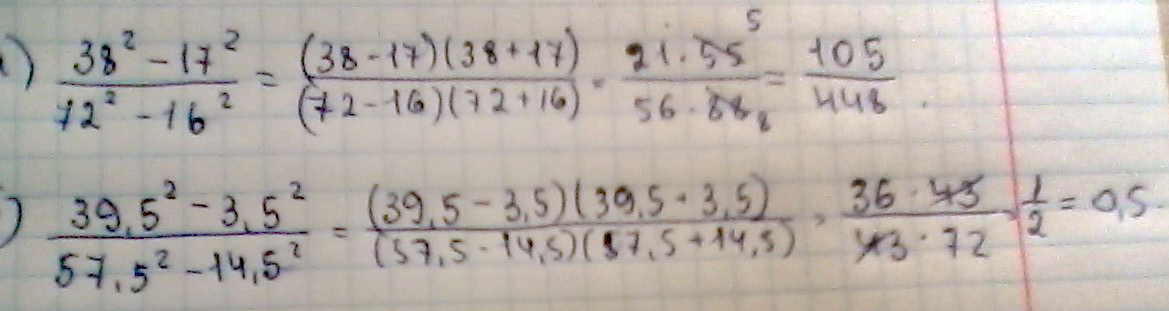 ) (38² - 17²)/(72² - 16²) = ((38-17)(38+17))/((72-16)(72+16)) = (21·55 5)/(56·88 8) = 105/448.
) (39,5² - 3,5²)/(57,5² - 14,5²) = ((39,5 - 3,5)(39,5 + 3,5))/((57,5 - 14,5)(57,5 + 14,5)) = (36·43)/(43·72) = 1/2 = 0,5.